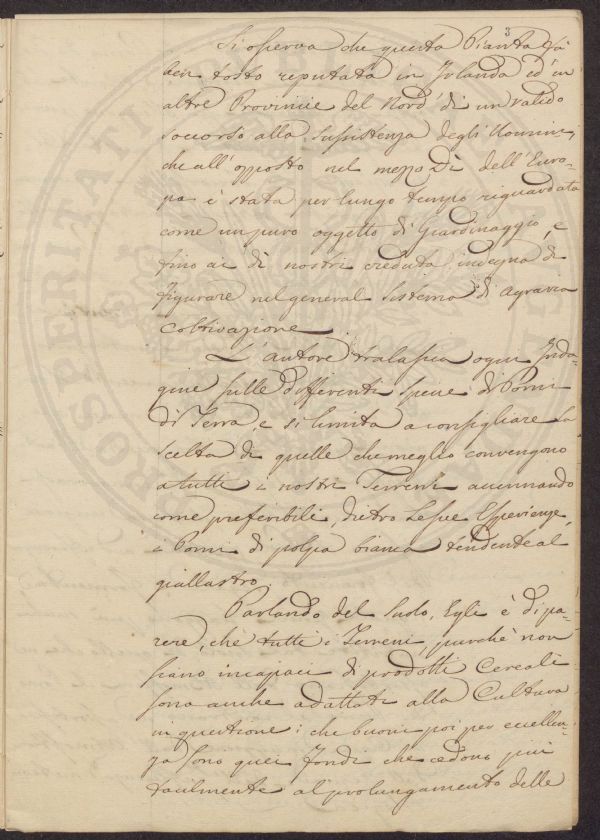 3
Si osserva che questa Pianta fù
ben tosto reputata in Irlanda ed in
altre Provincie del Nord di un valido
soccorso alla sussistenza degli Uomini,
che all'opposto nel mezzo Dì dell'Euro-
pa è stata per lungo tempo riguardata
come un puro oggetto di Giardinaggio, e
fino ai dì nostri creduta indegna di
figurare nel general Sistema di Agraria
Coltivazione.
L'autore tralascia ogni Inda-
gine sulle differenti specie di Pomi
di Terra, e si limita a consigliare la
scelta di quelle che meglio convengono
a tutti i nostri Terreni accennando
come preferibili, dietro le sue Esperienze,
i Pomi di polpa bianca tendente al
giallastro.
Parlando del Suolo, Egli è di pa-
rere, che tutti i Terreni, purchè non
siano incapaci di prodotti Cereali
sono anche adattati alla Cultura
in questione; che buoni poi per eccellen-
za sono quei fondi che cedono più
facilmente al prolungamento delle
PROSPERITATI PUBLI